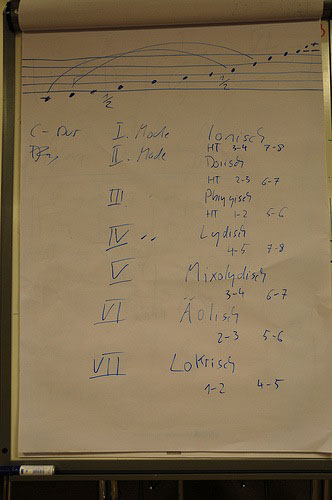 ½ ½
C-Dur I. Mode Ionisch
HT 3-4 7-8
II. Mode Dorisch
HT 2-3 6-7
III Phrygisch
HT 1-2 5-6
IV " Lydisch
4-5 7-8
V Mixolydisch
3-4 6-7
VI Äolisch
2-3 5-6
VII Lokrisch
1-2 4-5